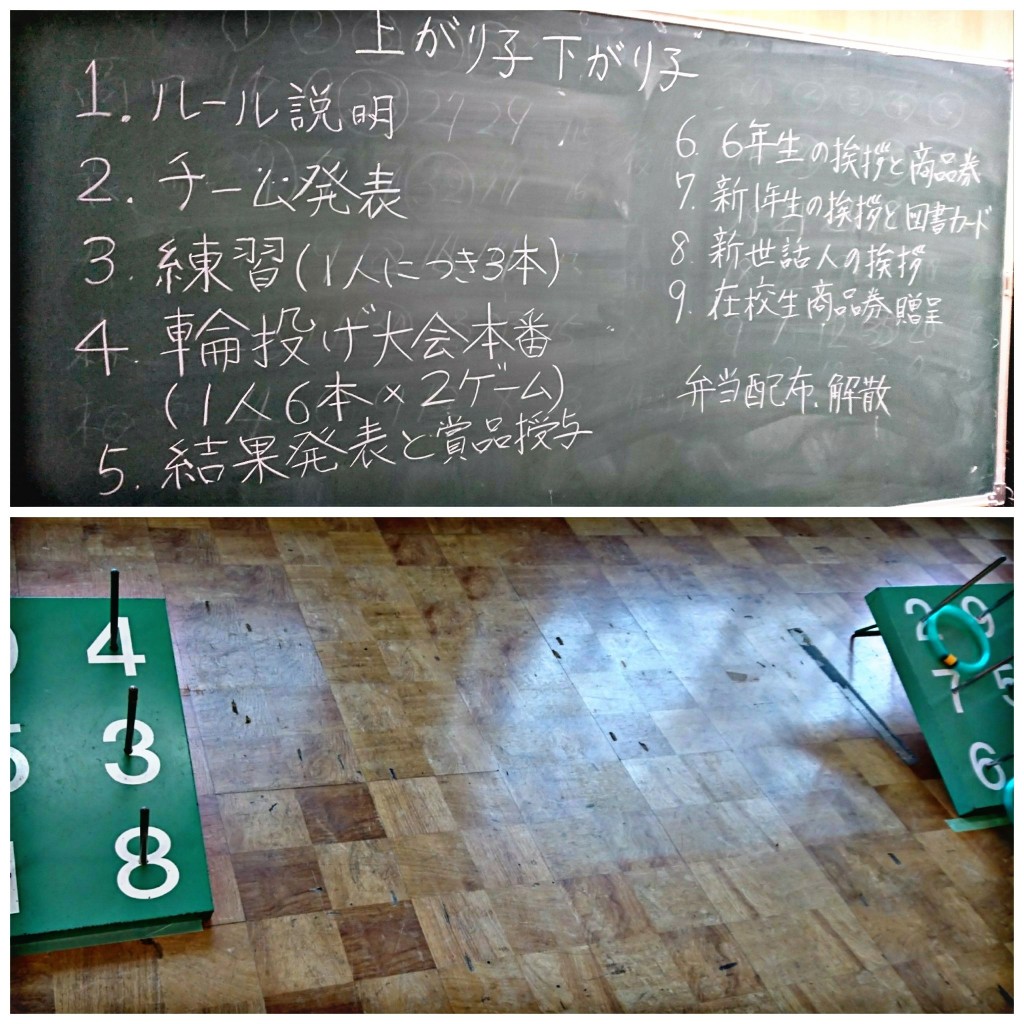 上がり子下がり子
1. ルール説明
2. チーム発表
3. 練習(1人につき3本)
4. 車輪投げ大会本番
(1人6本×2ゲーム)
5. 結果発表と賞品授与
6. 6年生の挨拶と商品券
7. 新1年生の挨拶と図書カード
8. 新世話人の挨拶
9. 在校生商品券贈呈
弁当配布.解散
4
3
8
2 9
7 5
6